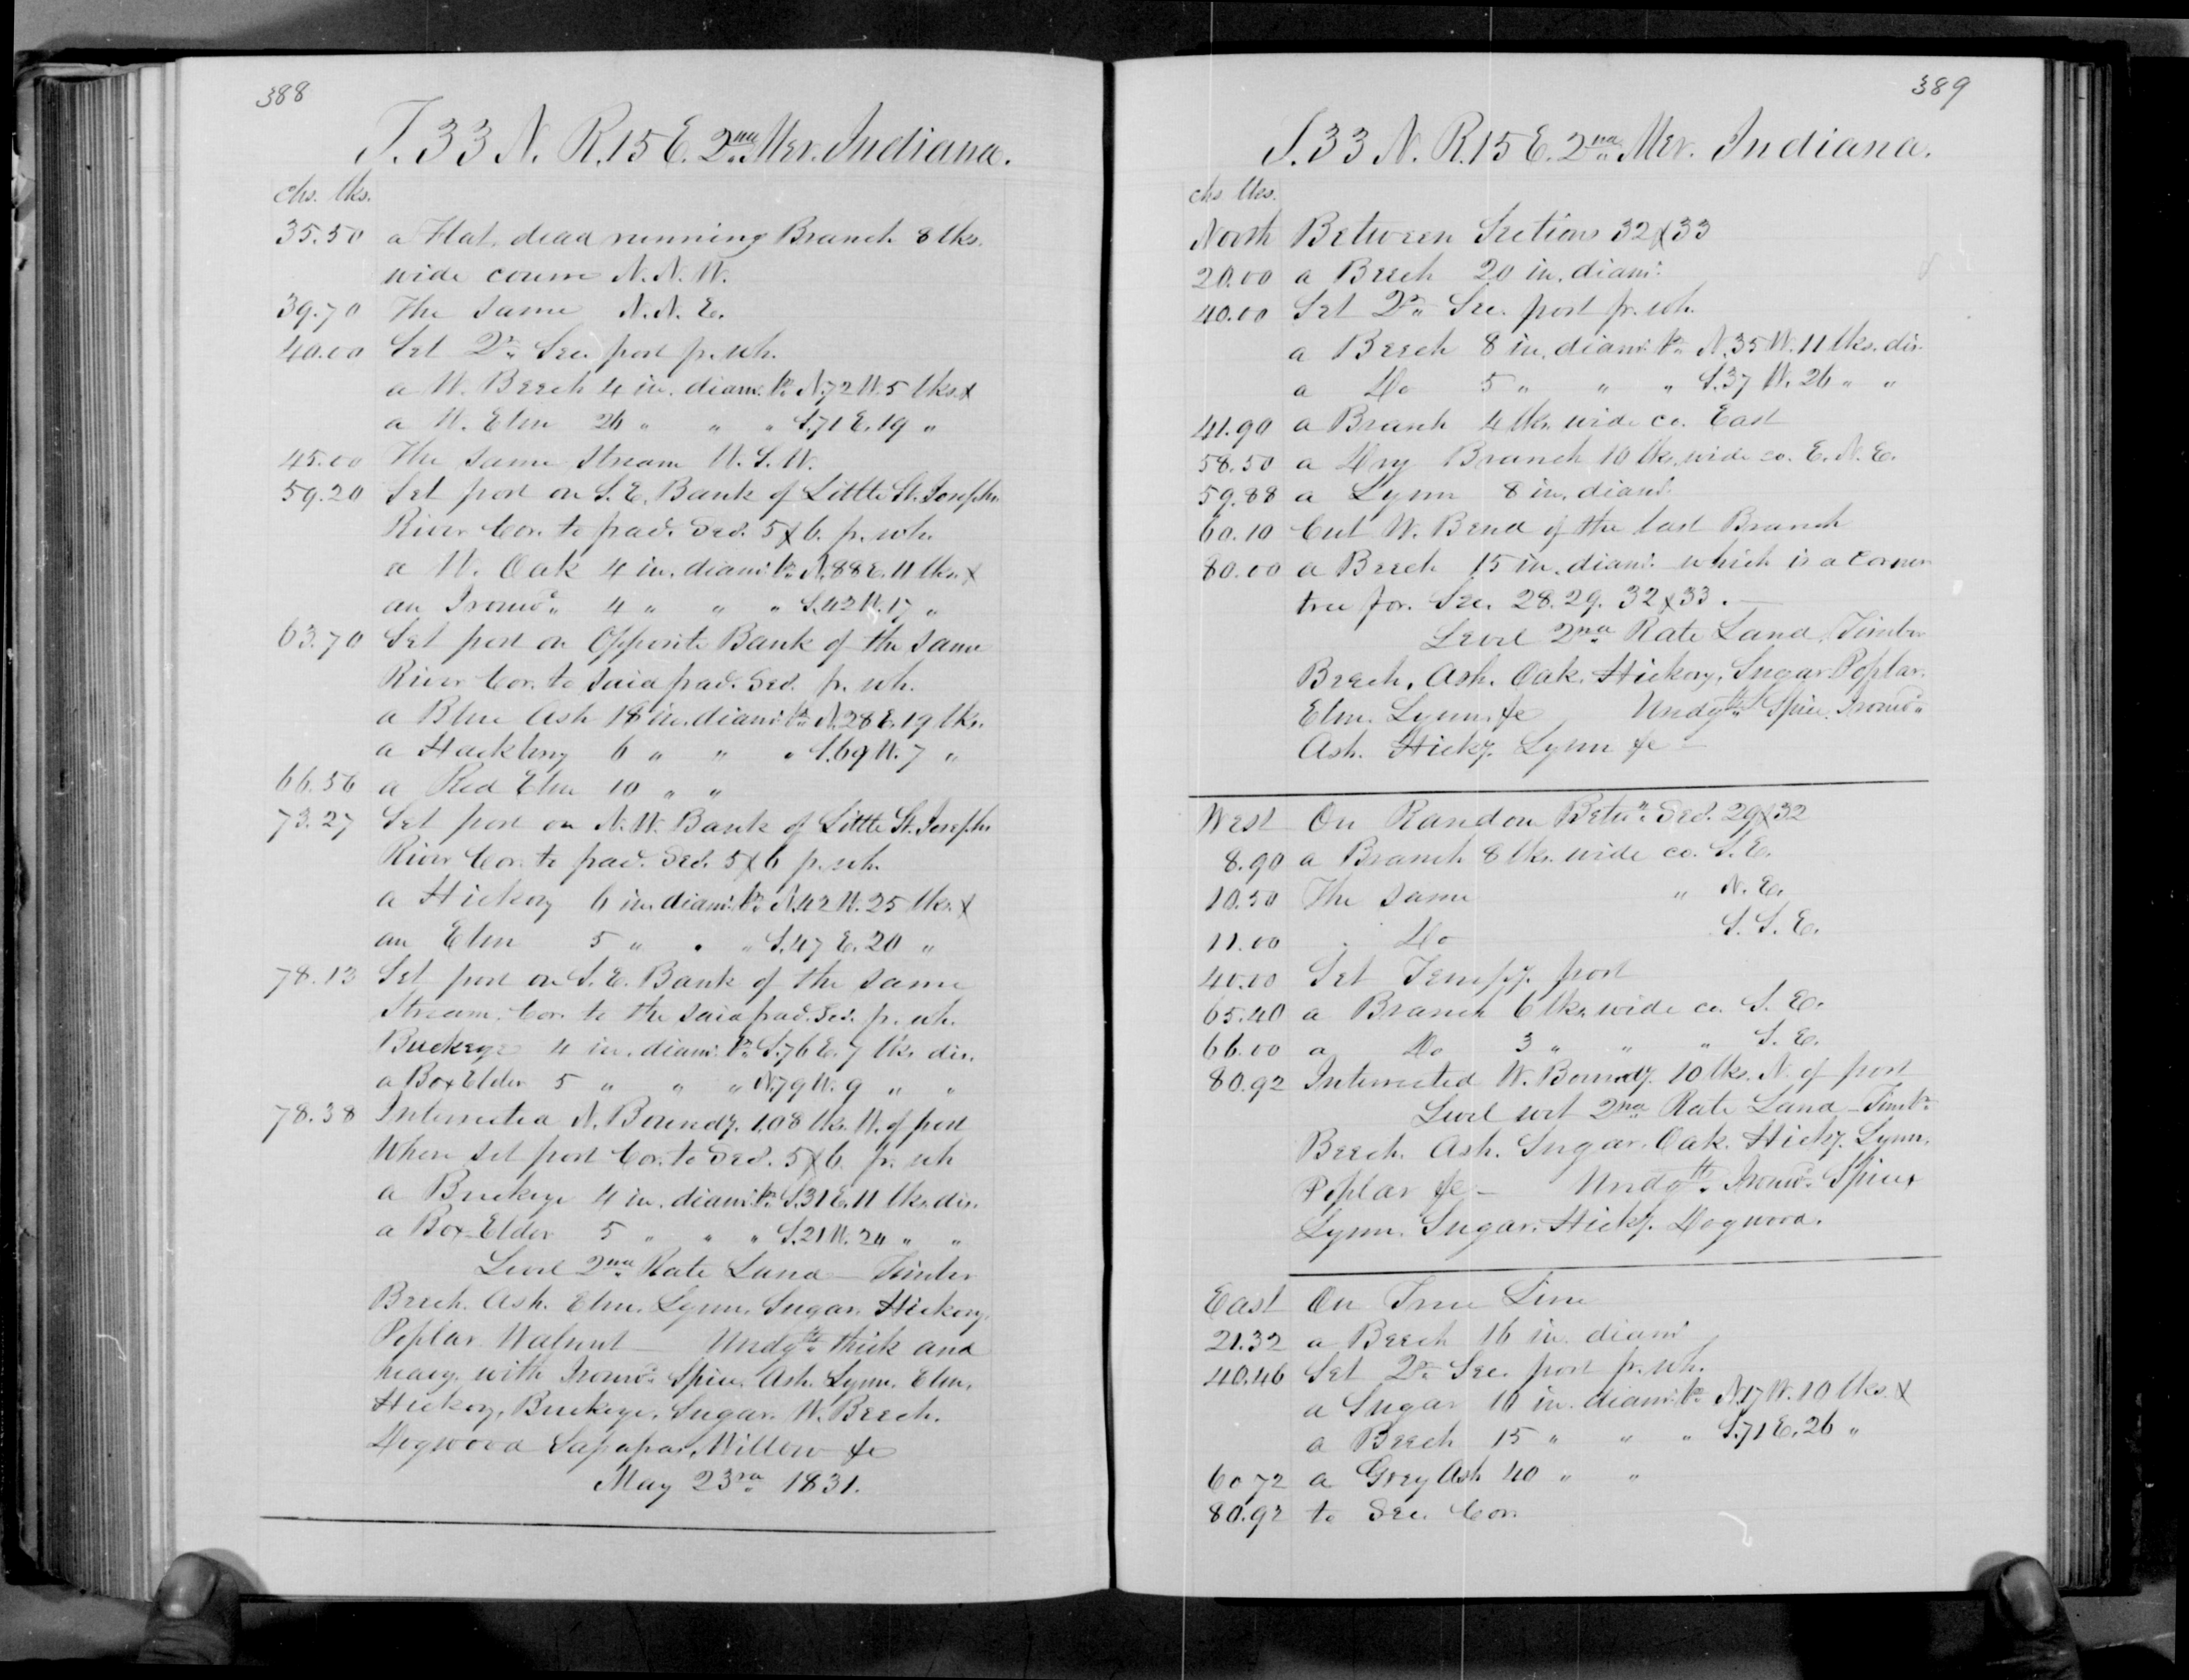 388
T. 33 N. R. 15 E. 2nd Mer. Indiana.
chs. lks.
35.50 a Flat, dead running Branch 8 lks.
wide course N. N. W.
39.70 The same N. N. E.
40.00 Set Qr. Sec. post fr. wh.
a W. Beech 4 in. diam. br. N. 72 W. 5 lks. &
a W. Elm 26 " " " S. 71 E. 19 "
45.00 The same stream W. S. W.
59.20 Set post on S. E. Bank of Little St. Josephs
River Cor. to frac. Secs. 5 & 6. fr. wh.
a W. Oak 4 in. diam. br. N. 88 E. 11 lks. &
an Ironwd. 4 " " " S. 42 W. 17 "
63.70 Set post on Opposite Bank of the same
River Cor. to said frac. Secs. fr. wh.
a Blue Ash 18 in. diam. br. N. 28 E. 19 lks.
a Hackbery 6 " " " S. 69 W. 7 "
66.56 a Red Elm 10 " "
73.27 Set post on N. W. Bank of Little St. Josephs
River Cor. to frac. Secs. 5 & 6 fr. wh.
a Hickory 6 in. diam. br. N. 42 W. 25 lks. &
an Elm 5 " " " S. 47 E. 20 "
78.13 Set post on S. E. Bank of the same
Stream. Cor. to the said frac. Secs. fr. wh.
Buckeye 4 in. diam. br. S. 76 E. 7 lks. dis.
a Box Elder 5 " " " N. 79 W. 9 " "
78.38 Intersected N. Boundy. 108 lks. W. of post
Where set post Cor. to Secs. 5 & 6. fr. wh
a Buckeye 4 in. diam. br. S. 31 E. 11 lks. dis.
a Box Elder 5 " " " S. 21 W. 24 " "
Level 2nd Rate Land – Timber
Beech. Ash. Elm. Lynn. Sugar. Hickory.
Poplar Walnut – Undgth. thick and
heavy. with Ironwd. Spice. Ash. Lynn. Elm.
Hickory, Buckeye, Sugar. W. Beech.
Dogwood Sassafras, Willow &c
May 23rd 1831.
389
T. 33 N. R. 15 E. 2nd Mer. Indiana.
chs lks.
North Between Sections 32 & 33
20.00 a Beech 20 in. diam.
40.00 Set Qr. Sec. post fr. wh.
a Beech 8 in. diam. br. N. 35 W. 11 lks. dis.
a Do 5 " " " S. 37 W. 26 " "
41.90 a Branch 4 lks. wide co. East
58.50 a Dry Branch 10 lks. wide co. E. N. E.
59.88 a Lynn 8 in. diam.
60.10 Cut W. Bend of the last Branch
80.00 a Beech 15 in. diam. which is a corner
tree for. Sec. 28. 29. 32 & 33. –
Level 2nd Rate Land, Timber
Beech. Ash. Oak. Hickory, Sugar Poplar.
Elm. Lynn. &c Undgth. Spice. Ironwd.
Ash. Hicky. Lynn &c –
West On Random Betwn. Secs. 29 & 32
8.90 a Branch 8 lks. wide co. S. E.
10.50 The same " N. E.
11.00 " Do S. S. E.
40.00 Set Tempy. post
65.40 a Branch 6 lks. wide co. S. E.
66.00 a Do 3 " " " S. E.
80.92 Intersected W. Boundy. 10 lks. N. of post
Level wet 2nd Rate Land – Timbr.
Beech. Ash. Sugar. Oak. Hicky. Lynn.
Poplar &c – Undgth. Ironwd. Spice
Lynn. Sugar. Hicky. Dogwood.
East On True Line
21.32 a Beech 16 in. diam
40.46 Set Qr. Sec. post fr. wh.
a Sugar 10 in. diam. br. N. 17 W. 10 lks. &
a Beech 15 " " " S. 71 E. 26 "
60.72 a Grey Ash 40 " "
80.92 to Sec. Cor.